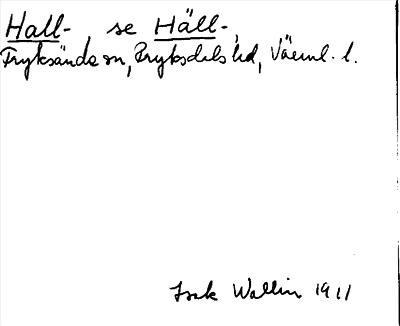 Hall-, se Häll-,
Fryksände sn, Fryksdals hd, Värml. l.
Isak Wallin 1911